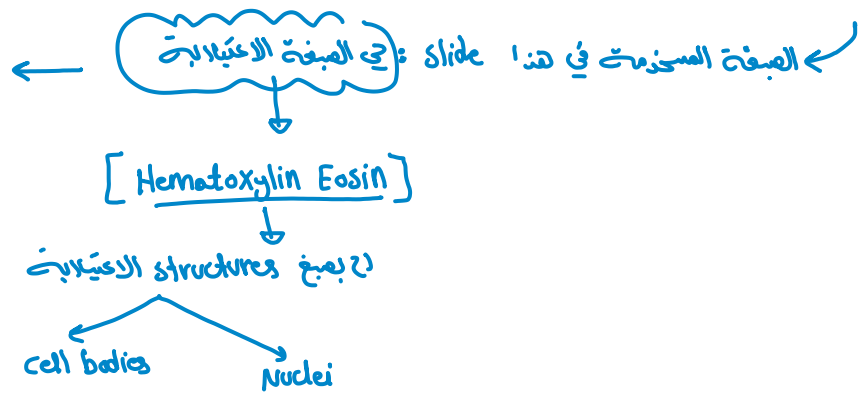 الصبغة المستخدمة في هذا slide : هي الصبغة الاعتيادية
[ Hematoxylin Eosin ]
رح يصبغ structures الاعتيادية
cell bodies
Nuclei